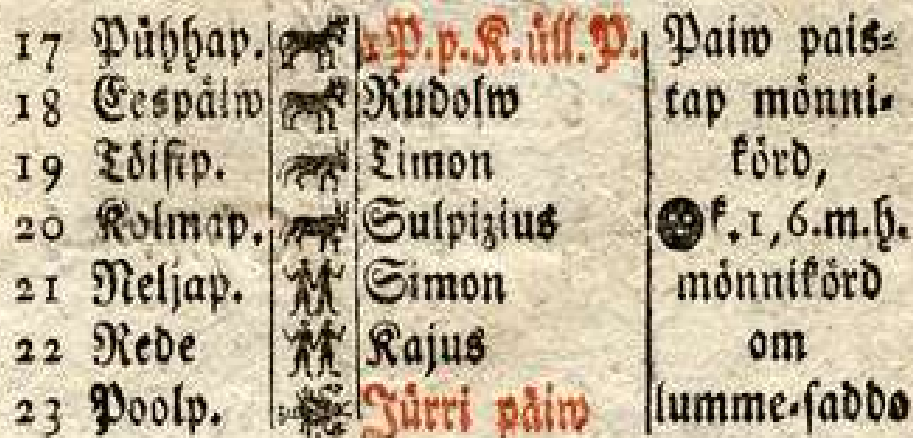 17 Pühhap. 1 P. p. K. üll. P. Paiw pais⸗
18 Eespäiw Rudolw tap mönni⸗
19 Töisip. Timon körd,
20 Kolmap. Sulpizius k. 1, 6. m. h.
21 Neljap. Simon mönnikörd
22 Rede Kajus om
23 Poolp. Jürri päiw lumme⸗saddo